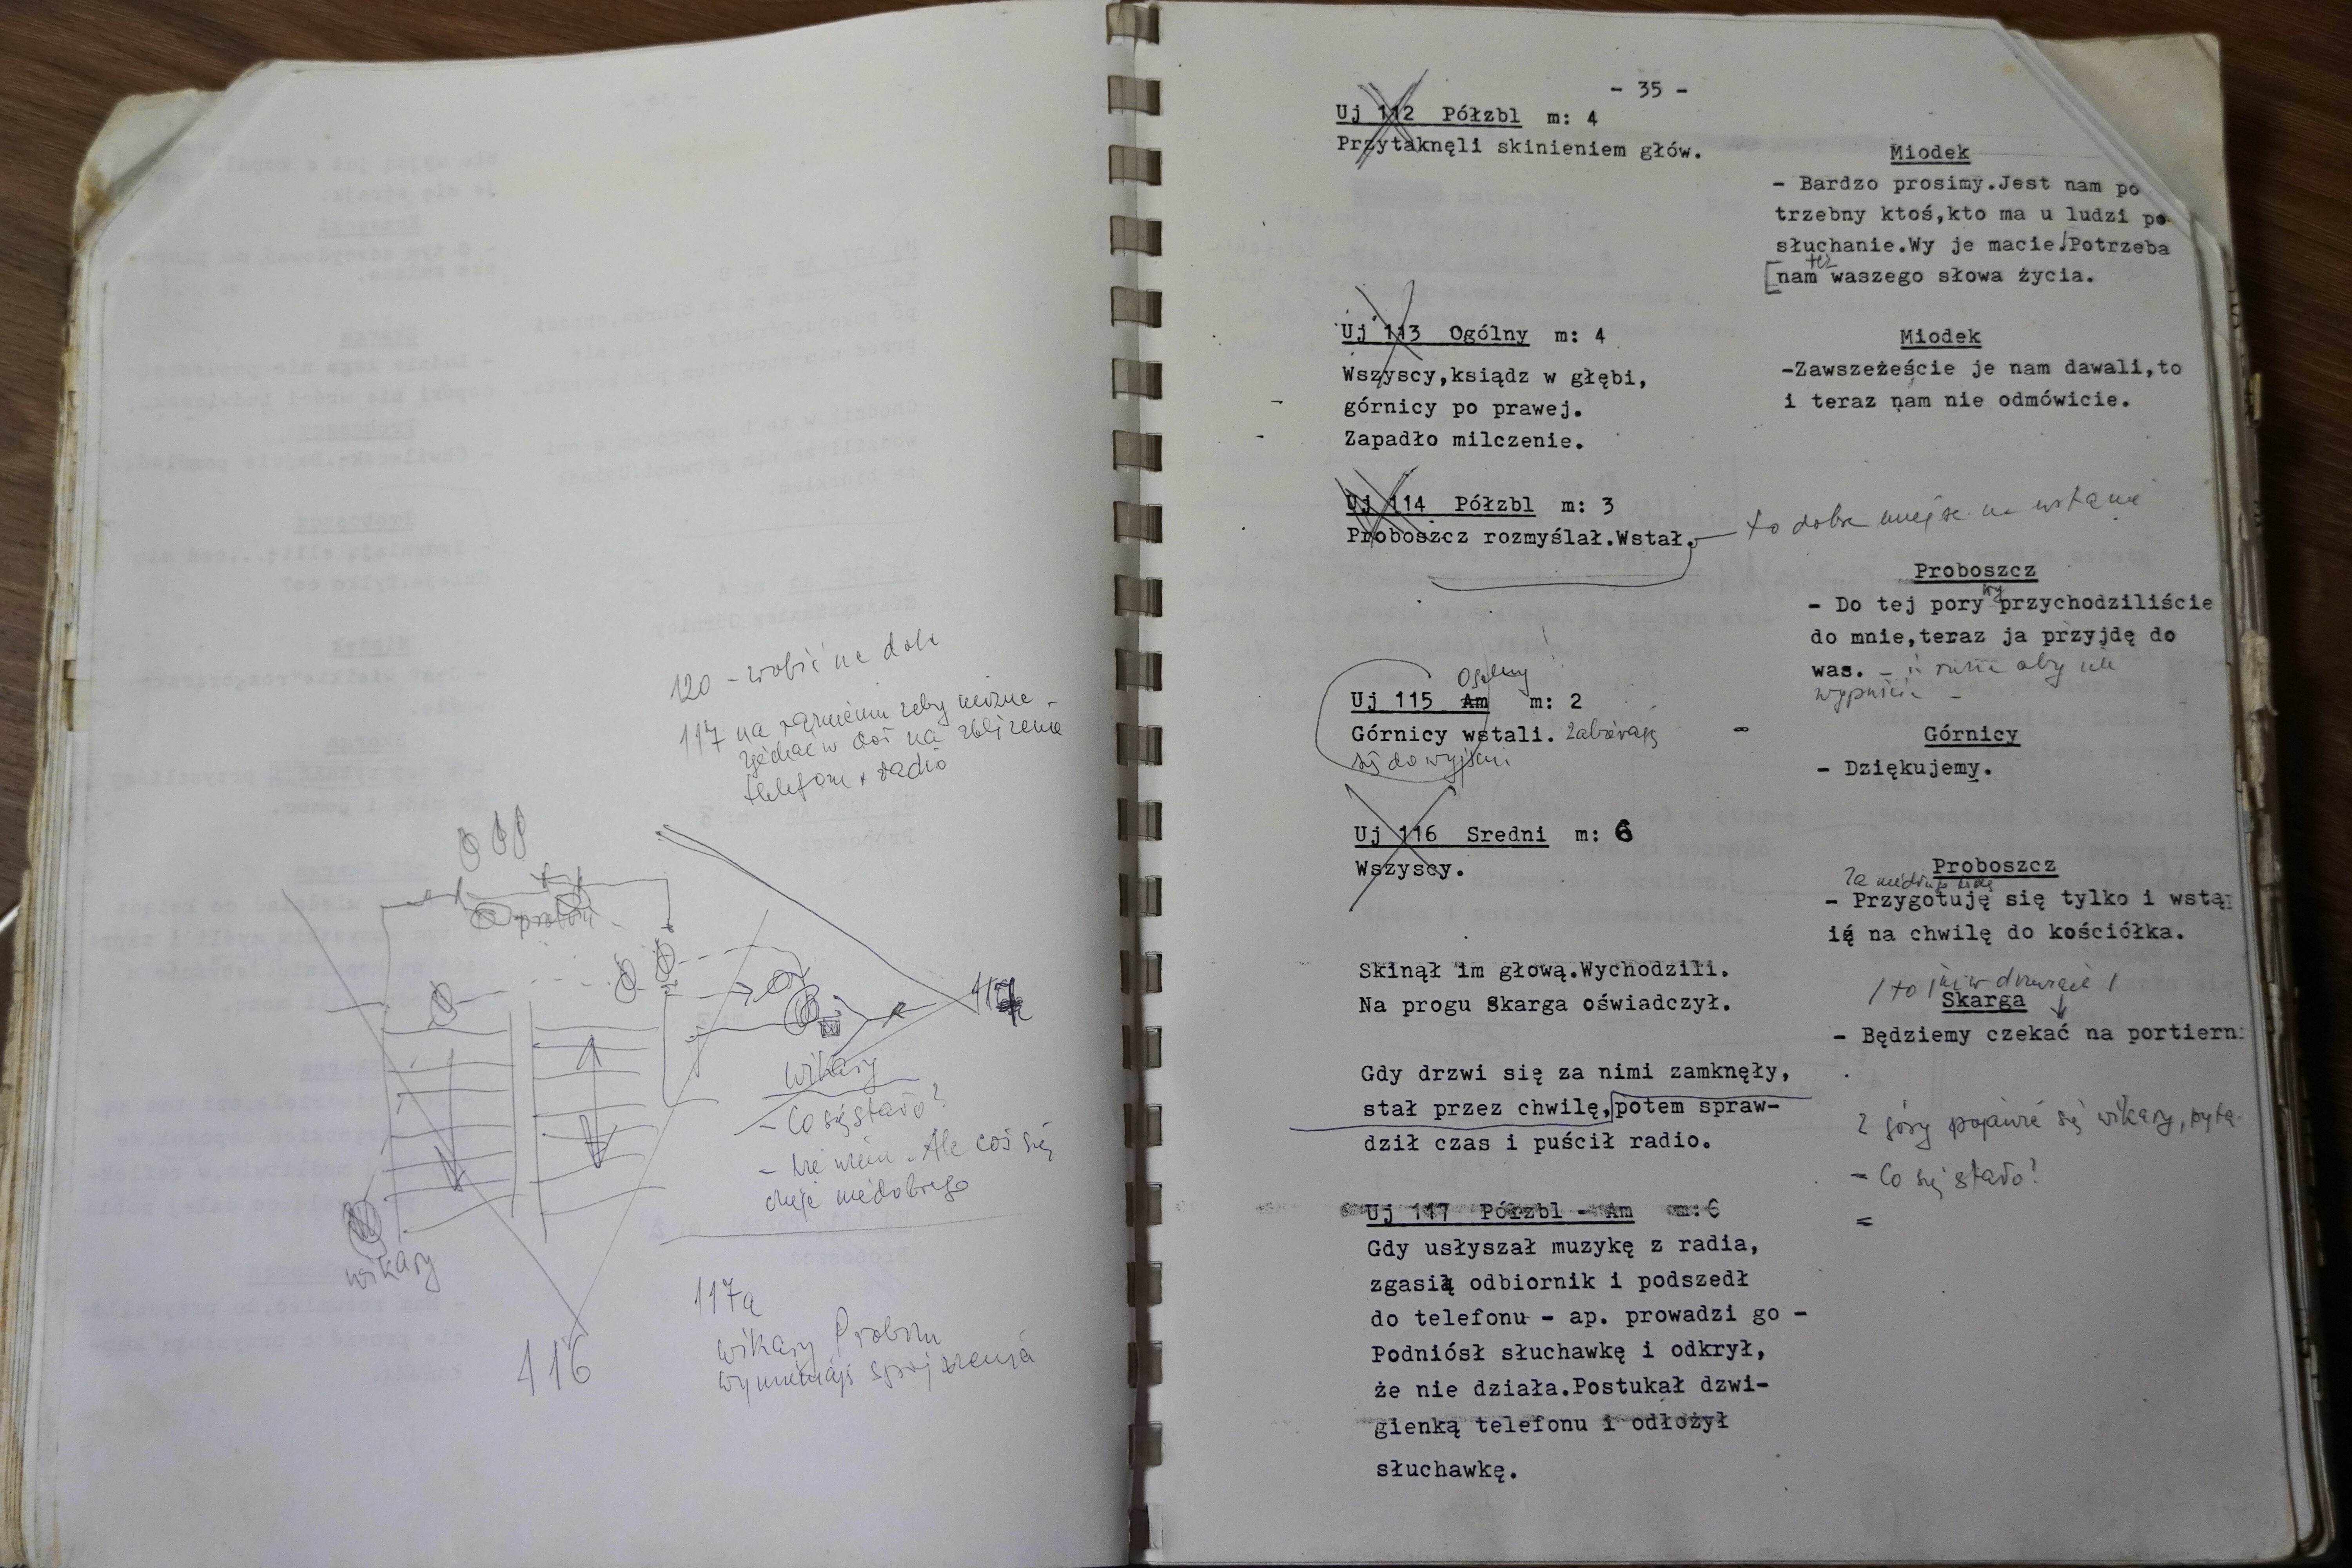 120 - zrobić na dole
117 na ramieniu żeby można
zjechać w doł na zbliżenie
telefonu, radio
probosz.
117a
wikary
- Co się stało?
- Nie wiem. Ale coś się
dzieje niedobrego
wikary
116
117a
wikary Probosz
wymieniają spojrzenia
- 35 -
Uj 112 Półzbl m: 4
Przytaknęli skinieniem głów.
Miodek
- Bardzo prosimy.Jest nam po
trzebny ktoś,kto ma u ludzi po
słuchanie.Wy je macie.Potrzeba
też
nam waszego słowa życia.
Uj 113 Ogólny m: 4
Wszyscy,ksiądz w głębi,
górnicy po prawej.
Zapadło milczenie.
Miodek
-Zawszeżeście je nam dawali,to
i teraz nam nie odmówicie.
Uj 114 Półzbl m: 3
Proboszcz rozmyślał.Wstał.
to dobre miejsce na wstanie
Proboszcz
wy
- Do tej pory przychodziliście
do mnie,teraz ja przyjdę do
was.
aby ich
wypuścić -
Ogólny
Uj 115 Am m: 2
Górnicy wstali. Zabierają
się do wyjścia
Górnicy
- Dziękujemy.
Uj 116 Sredni m: 6
Wszyscy.
Proboszcz
Za niedługo będę
- Przygotuję się tylko i wstą
ię na chwilę do kościółka.
Skinął im głową.Wychodzili.
Na progu Skarga oświadczył.
/ to już w drzwiach /
Skarga
- Będziemy czekać na portiern
Gdy drzwi się za nimi zamknęły,
stał przez chwilę,potem spraw-
dził czas i puścił radio.
z góry pojawia się wikary, pyta
- Co się stało?
Uj 117 Półzbl - Am m:6
Gdy usłyszał muzykę z radia,
zgasił odbiornik i podszedł
do telefonu - ap. prowadzi go -
Podniósł słuchawkę i odkrył,
że nie działa.Postukał dzwi-
gienką telefonu i odłożył
słuchawkę.